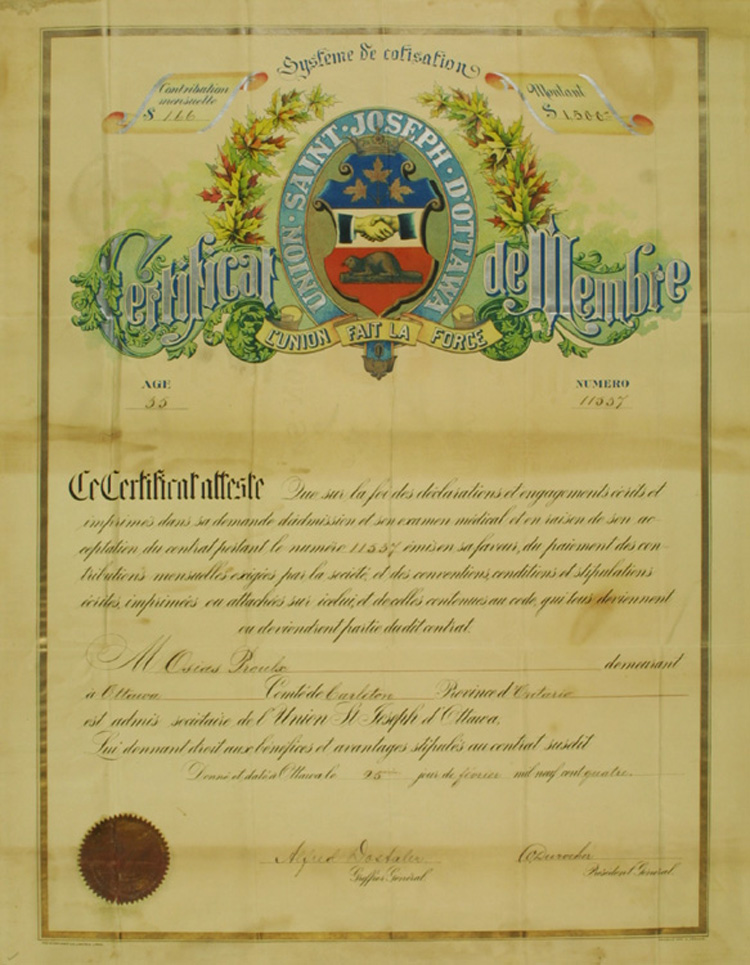 Système de cotisation
Contribution
mensuelle
$ 1.66
Montant
$ 1.500
UNION · SAINT · JOSEPH · D'OTTAWA
Certificat de Membre
L'UNION FAIT LA FORCE
AGE
35
NUMERO
11557
Ce Certificat atteste Que sur la foi des déclarations et engagements écrits et
imprimés dans sa demande d'admission et son examen médical et en raison de son ac-
ceptation du contrat portant le numéro 11557 émis en sa faveur, du paiement des con-
tributions mensuelles exigées par la société, et des conventions, conditions et stipulations
écrites, imprimées ou attachées sur icelui, et de celles contenues au code, qui tous deviennent
ou deviendront partie du dit contrat.
M Osias Proulx demeurant
à Ottawa Comté de Carleton Province d'Ontario
est admis sociétaire de l'Union St Joseph d'Ottawa,
Lui donnant droit aux bénéfices et avantages stipulés au contrat susdit
Donné et daté à Ottawa le 25 jour de février mil neuf cent quatre.
Alfred Dostaler
Greffier Général
O Durocher
Président Général.